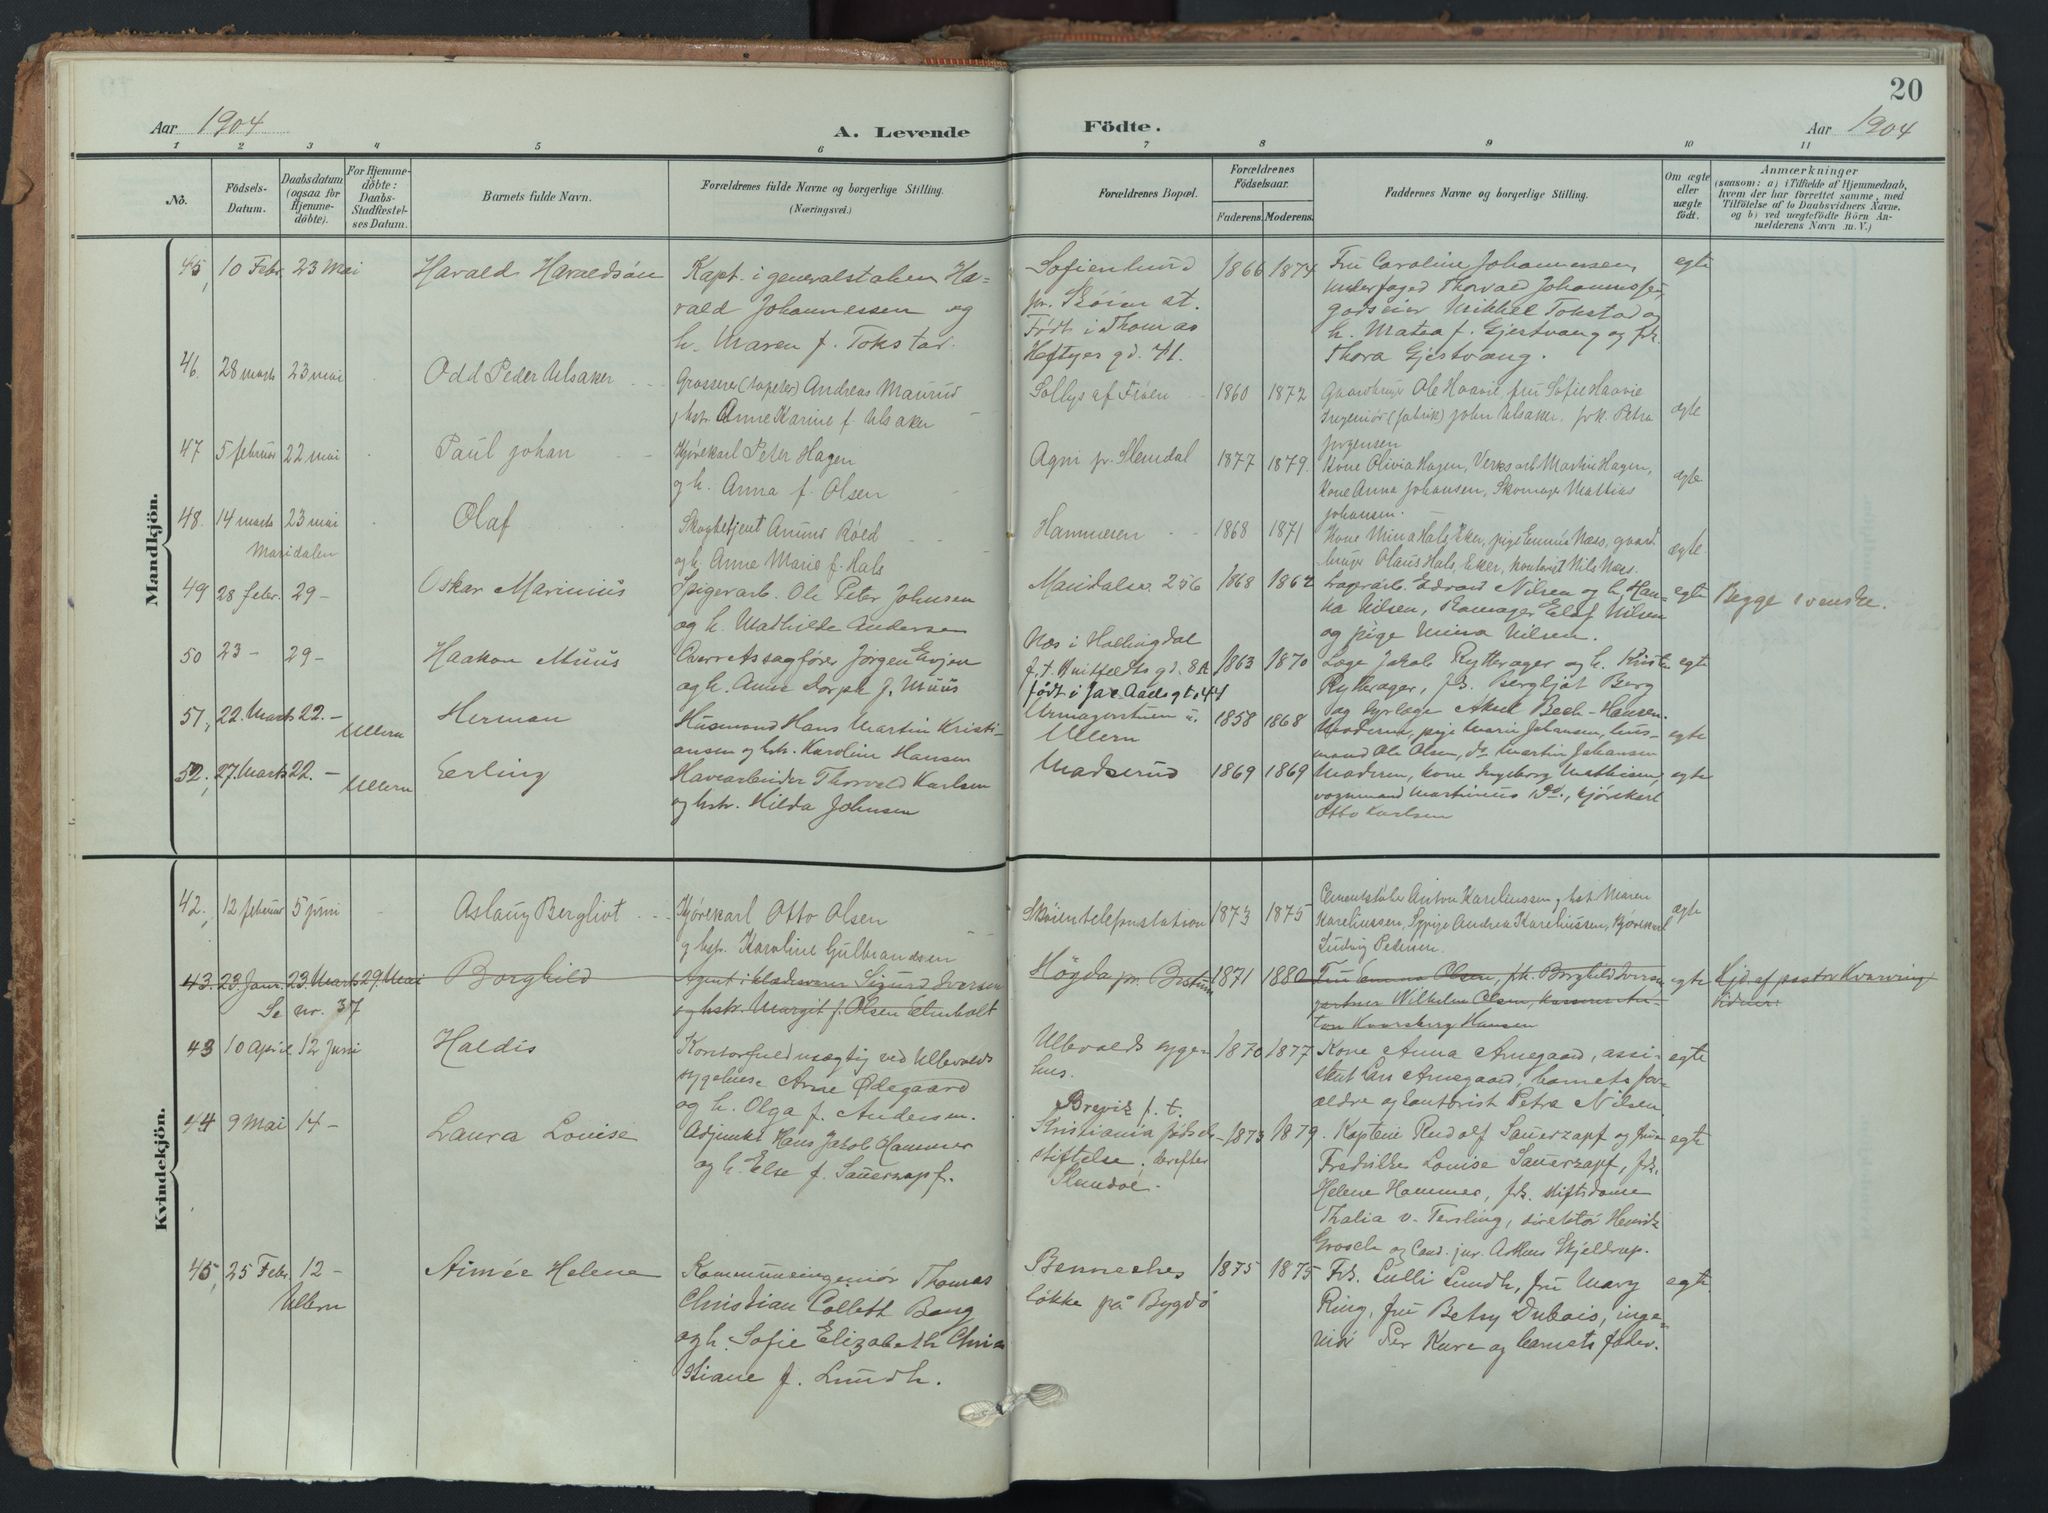 20
Aar 1904
A. Levende
Födte.
Aar 1904
1 2 3 4 5 6 7 8 9 10 11
No.
Födsels-
Datum.
Daabsdatum
(ogsaa for
Hjemme-
döbte).
For Hjemme-
döbte:
Daabs-
Stadfæstel-
ses Datum.
Barnets fulde Navn.
Forældrenes fulde Navne og borgerlige Stilling.
(Næringsvei.)
Forældrenes Bopæl.
Forældrenes
Födselsaar.
Faderens. Moderens.
Faddernes Navne og borgerlige Stilling.
Om ægte
eller
uægte
født.
Anmærkninger
(saasom: a) i Tilfælde af Hjemmedaab,
hvem der har forrettet samme, med
Tilföielse af to Daabsvidners Navne,
og b) ved uægtefödte Börn An-
melderens Navn m. V.)
Mandkjön.
45, 10 Febr. 23 Mai
Harald Haraldsön
Kapt. i generalstaben Ha-
rald Johannessen og
h. Maren f. Tokstad.
Sofienlund
pr. Sköien st.
Födt i Thomas
Heftyes gd. 41.
1866 1874
Fru Caroline Johannessen,
Thorvald Johannessen,
godseier Mikkel Tokstad og
h. Matea f. Gjestvang og frk.
Thora Gjestvang.
egte
46. 28 marts 23 mai
Odd Peder Ulsaker
Grosserer (tapeter) Andreas Maurud
g hst. Anne Karine f. Ulsaker
Sollys af Fröen
1860 1872
Gaardbruger Ole Haavie, fru Sofie Haavie
Ingeniør (fabrik) John Ulsaker. frk. Petra
Jørgensen
ægte
47 5 februar 22 mai
Paul Johan
Kjørekarl Peter Hagen
og h. Anna f. Olsen
Agni pr. Slemdal
1877 1879.
Kone Olivia Hagen, Verksarb. Martin Hagen,
Kone Anna Johansen, Skomager Mattias
Johansen.
ægte
48. 14 marts 23 mai
Maridalen
Olaf
Skogbetjent Amund Röed
og h. Anne Marie f. Hals
Hammeren
1868 1871
Kone Mina Hals, Eker, pige Emma Næs, gaard
bruger Olaus Hals, Eker, kontorist Nils Næs.
ægte.
49 28 febr. 29 -
Oskar Marinius
Spigerarb. Ole Peter Johnsen
og h. Mathilde Andersen
Maridalsv. 256
1868 1862
Edvard Nilsen og h. Han-
na Nilsen, Skomager Elof Nilsen
og pige Mina Nilsen.
egte
Begge svenske.
50 23 - 29 -
Haakon Muus
Overretssagfører Jörgen Evjen
og h. Anne Dorph f. Muus
Næs i Hallingdal
f. t. Huitfeldts gd. 8A
født i Jac. Aalls gt. 44
1863 1870
Læge Jakob Rytterager og h. Kristi
Rytterager, frk. Bergljot Berg
og dyrlæge Aksel Bech-Hansen.
egte
51, 22. Marts 22. - Ullern
Herman
Husmand Hans Martin Kristi-
ansen og hst. Karoline Hansen
Urmagerstuen u.
Ullern
1858 1868
Moderen, pige Marie Johansen, hus-
mand Ole Olsen, do. Martin Johansen
egte
52, 27. Marts 22. - Ullern
Erling
Havearbeider Thorvald Karlsen
og hst. Hilda Johnsen
Madserud
1869 1869
Moderen, kone Ingeborg Mathisen,
vognmand Martinius do., kjörekarl
Otto Karlsen
egte
Kvindekjön.
42, 12 februar 5 juni
Aslaug Bergliot
Kjörekarl Otto Olsen
g hst. Karoline Gulbrandsen
Sköien telefonstation
1873 1875
Cementstøber Anton Kareliussen g hst. Maren
Kareliussen, Sypige Andrea Kareliussen, Kjörekarl
Ludvig Pedersen.
ægte
43. 23. Janr. 23. Marts 29. Mai
Se no. 37
Borghild
Agent i Sigurd Iversen
og hst. Margit f. Olsen Elmholt
Högda pr. Bestum
1871 1880
Fru Emma Olsen, frk. Borghild Iversen
gartner Wilhelm Olsen, An-
ton Kvarsberg Hansen
egte
Hjd. af pastor Kvarving
Vidner:
43 10 April 12 Juni
Haldis
Kontorfuldmægtig ved Ullevolds
sygehuse Arne Ødegaard
og h. Olga f. Andersen.
Ullevolds syge-
hus.
1870 1877
Kone Anna Arnegaard, assi-
stent Lars Arnegaard, barnets for-
ældre og kontorist Petra Nilsen
egte
44 9 Mai 14 -
Laura Louise
Adjunkt Hans Jakob Hammer
og h. Else f. Sauerzapf.
Brevik f. t.
Kristiania födsels-
stiftelse, derefter
1873 1879
Kaptein Rudolf Sauerzapf og frue
Fredrikke Louise Sauerzapf, frk.
Helene Hammer, frk. stiftsdame
Thalia v. Tersling, direktör Henrik
Grosch og Cand. jur. Arthur Skjeldrup.
egte
45, 25 Febr. 12 -
Ullern
Aimée Helene
Kommuneingeniör Thomas
Christian Collett Bang
og h. Sofie Elizabeth Chri-
stiane f. Lundh.
Benneches
løkke på Bygdö
1875 1875
Frk. Lulli Lundh, fru Mary
Ring, fru Betsy Dubois, inge-
niör Per Kure og barnets fader.
egte.